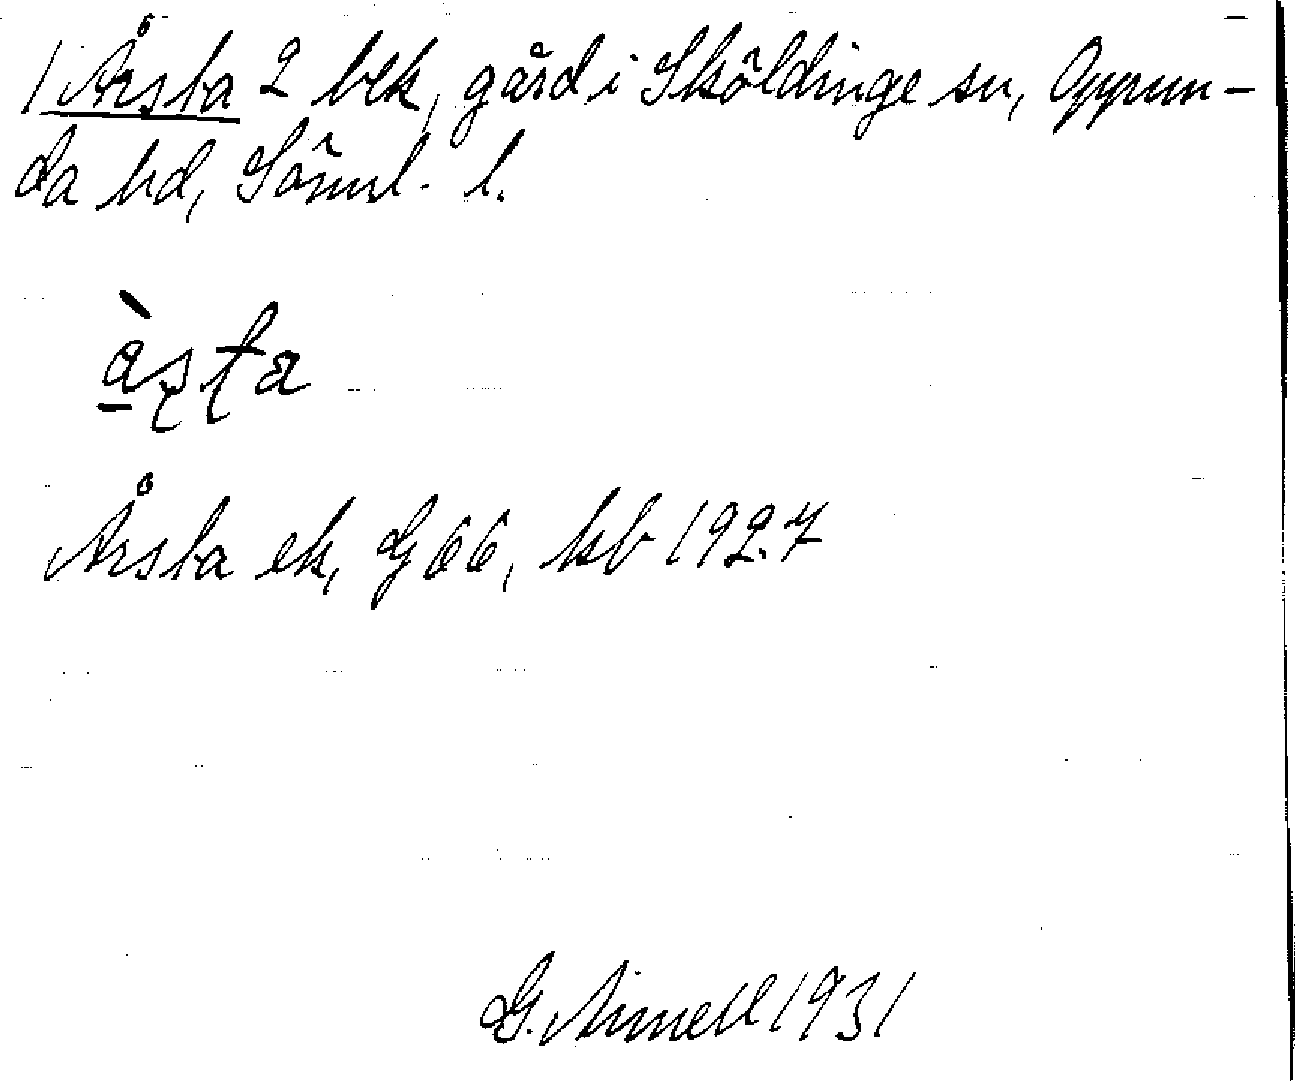 / Årsta 2 bek, gård i Sköldinge sn, Oppun-
da hd, Söml. l.
àşţa
Årsta ek, G 66, kb 1927
G. Ainell 1931